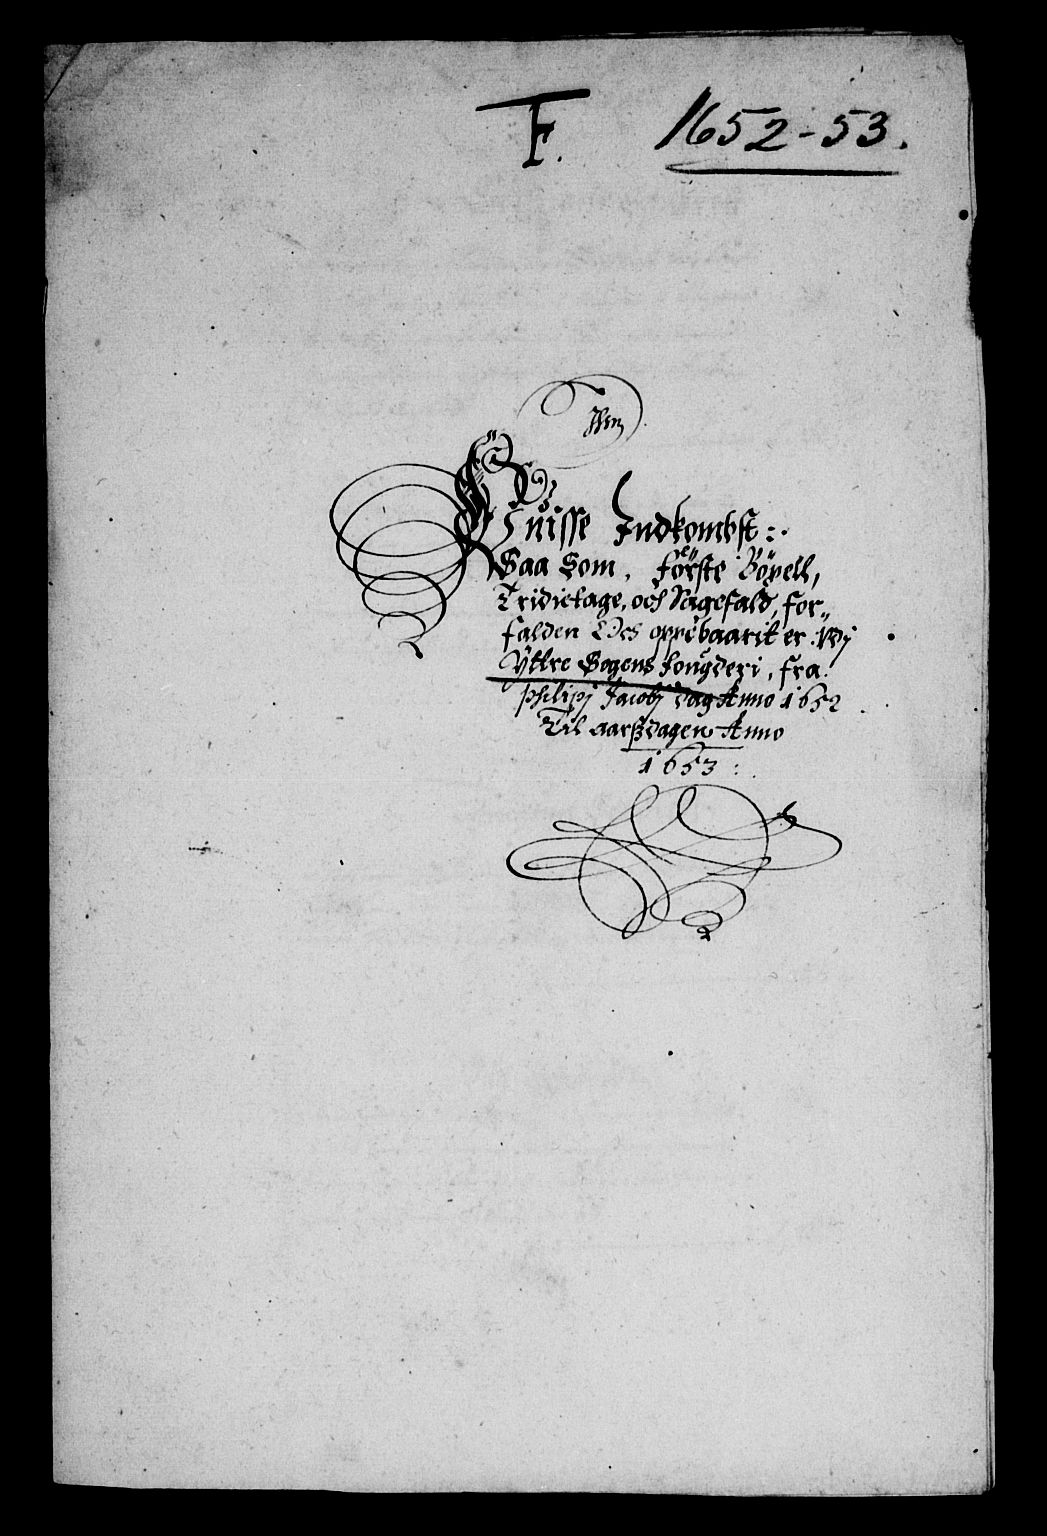 F. 1652-53.
Wuisse Indkombst:
Saa Som, förste Böxell,
Tridietage, och Sagefald, for„
falden Och oppebaarit er Wdj
Yttre Sogens fougderi, fra
Philipj Jacobj dag Anno 1652
Til aarsdagen Anno
1653: